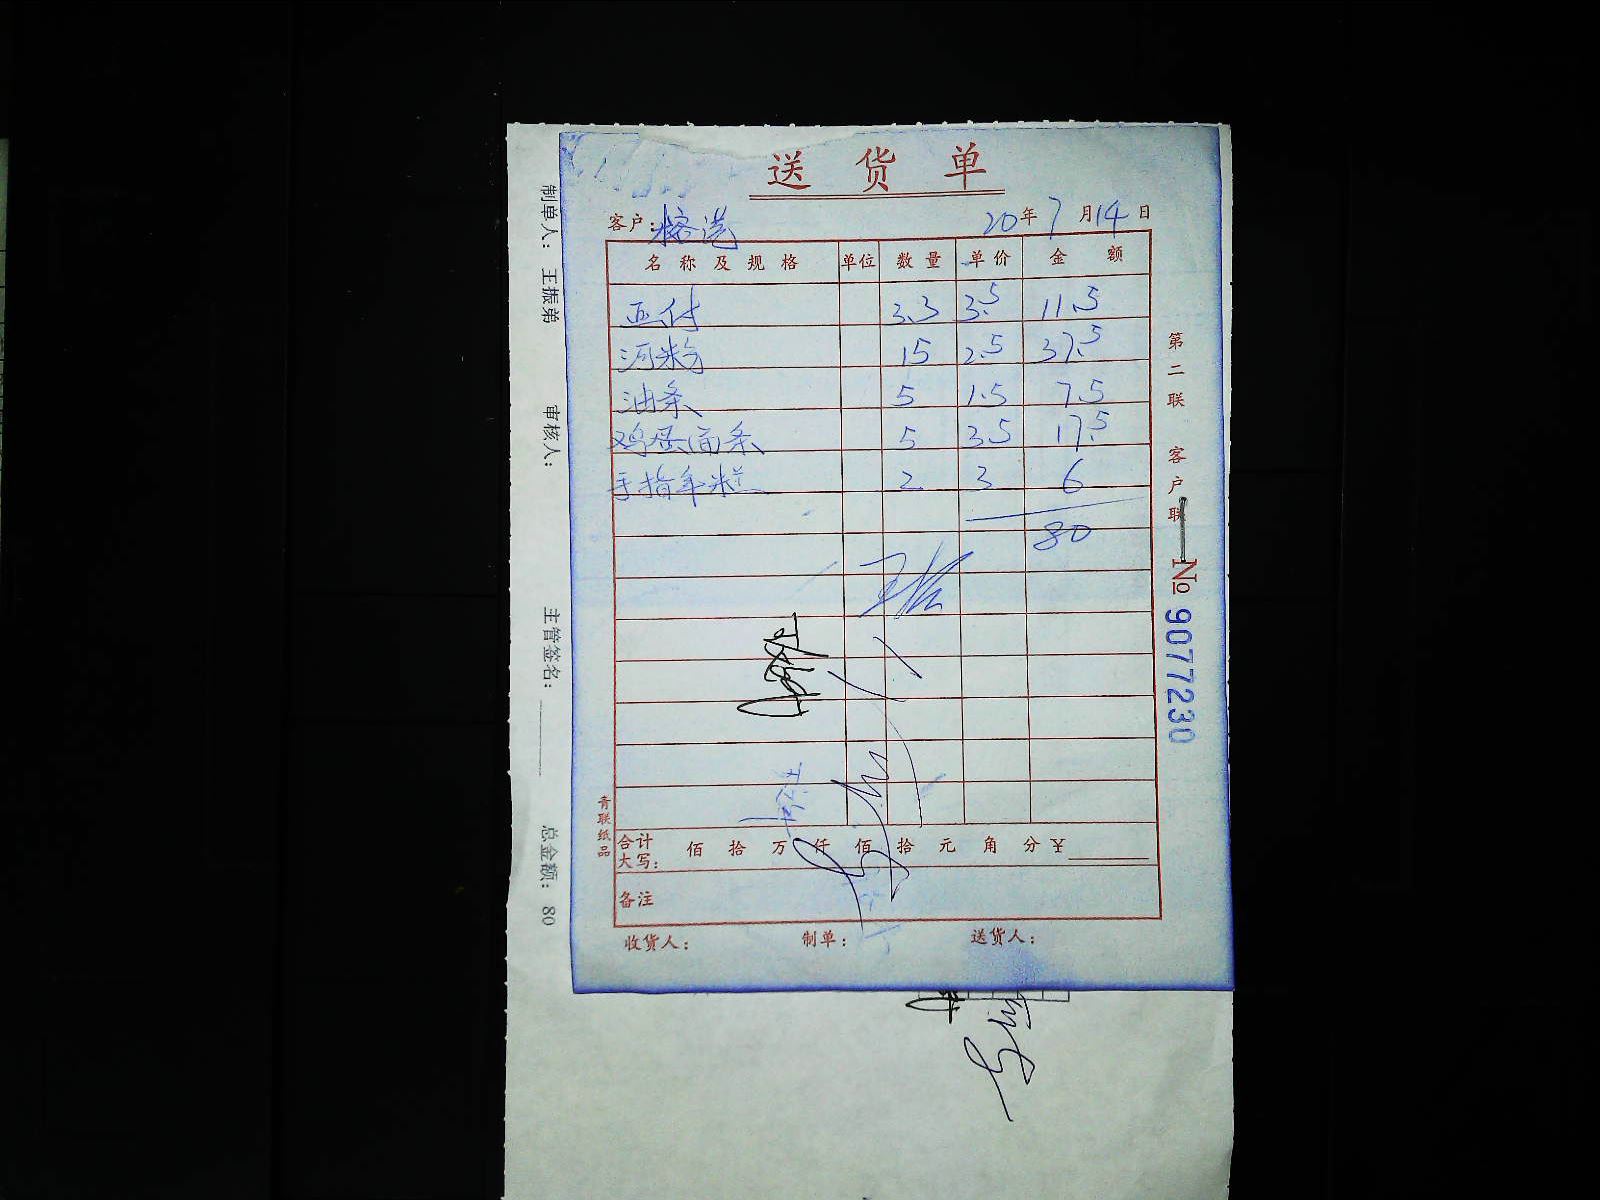 送货单
客户：榕选 20年7月14日
名称及规格 单位 数量 单价 金额
豆付 3.3 3.5 11.5
河粉 15 2.5 37.5
油条 5 1.5 7.5
鸡蛋面条 5 3.5 17.5
手指年糕 2 3 6
80
合计大写： 佰 拾 万 仟 佰 拾 元 角 分 ¥
备注
收货人： 制单： 送货人：
第二联 客户联
№ 9077230
青联纸品
制单人： 王振弟 审核人： 主管签名： 总金额： 80